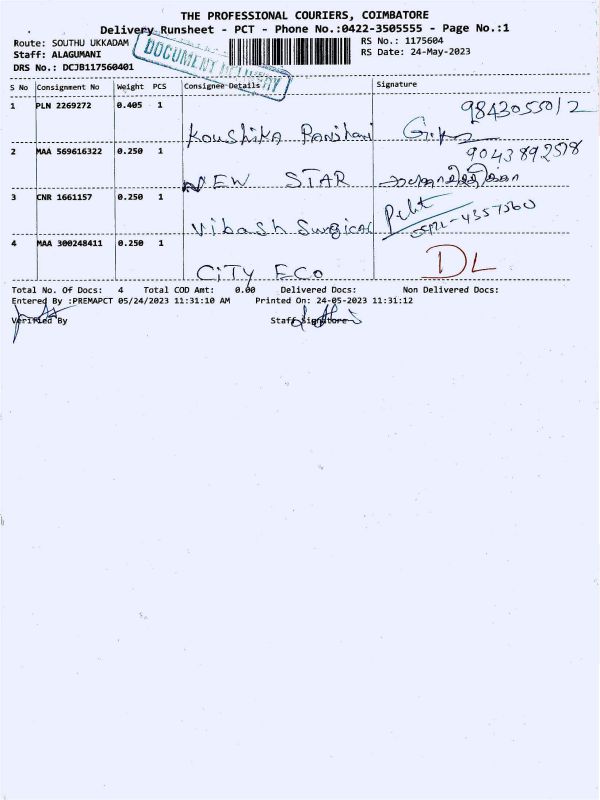 THE PROFESSIONAL COURIERS, COIMBATORE
Delivery Runsheet - PCT - Phone No.:0422-3505555 - Page No.:1
Route: SOUTHU UKKADAM
RS No.: 1175604
Staff: ALAGUMANI
RS Date: 24-May-2023
DRS No.: DCJB117560401
DOCUMENT DELIVERY
S No Consignment No Weight PCS Consignee Details Signature
1 PLN 2269272 0.405 1
9843055012
Koushika
2 MAA 569616322 0.250 1
9043892518
NEW STAR
3 CNR 1661157 0.250 1
Vibash Surgical
4 MAA 300248411 0.250 1
CITY ECO
DL
Total No. Of Docs: 4 Total COD Amt: 0.00 Delivered Docs: Non Delivered Docs:
Entered By :PREMAPCT 05/24/2023 11:31:10 AM Printed On: 24-05-2023 11:31:12
Verified By Staff Signature